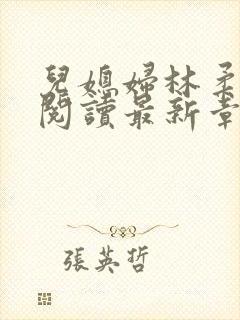 兒媳婦林柔
閱讀最新章
張英哲